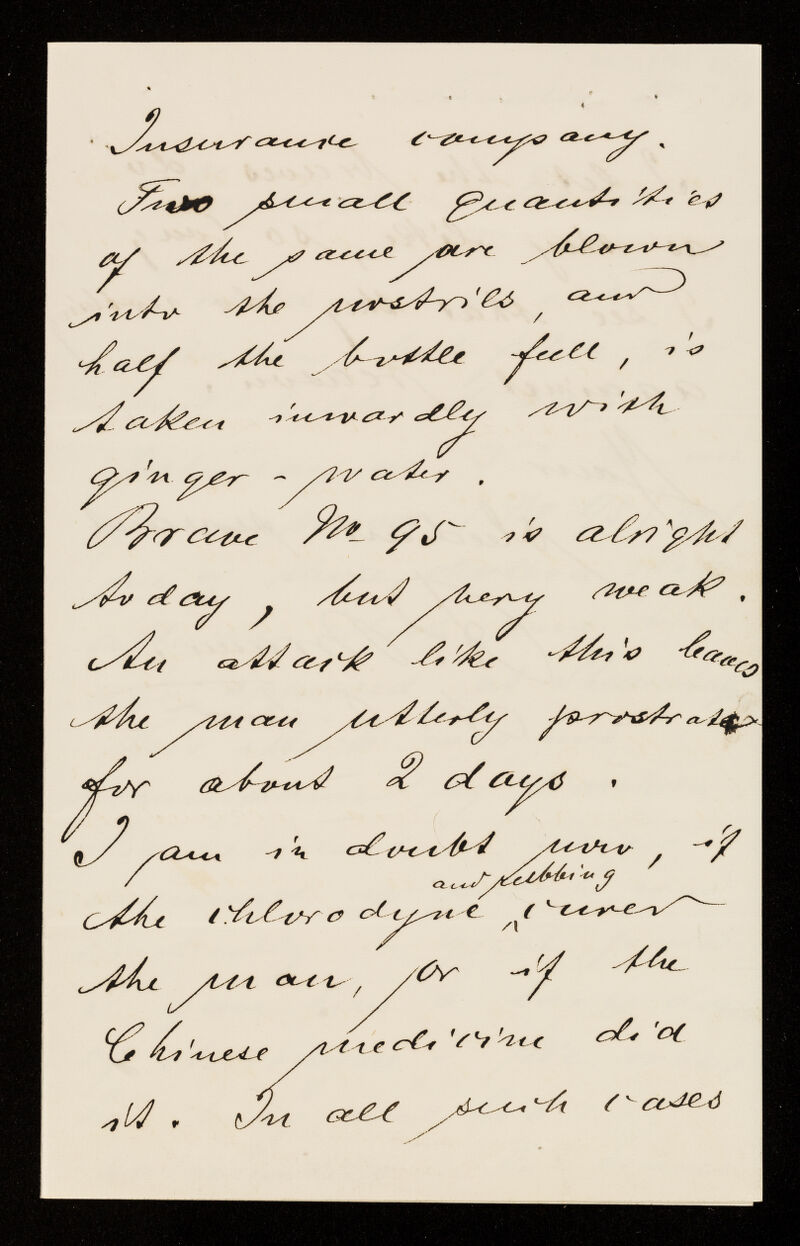 Insurance company.
Two small quantities
of the same are blown
into the nostrils, and
half the bottle full, is
taken inwardly with
ginger-water.
Brave No 95 is alright
today, but very weak.
An attack like this leaves
the man utterly prostrate
for about 2 days.
I am in doubt now, if
and rubbing
the chlorodyne cured
the man, or if the
Chinese medicine did
it. In all such cases